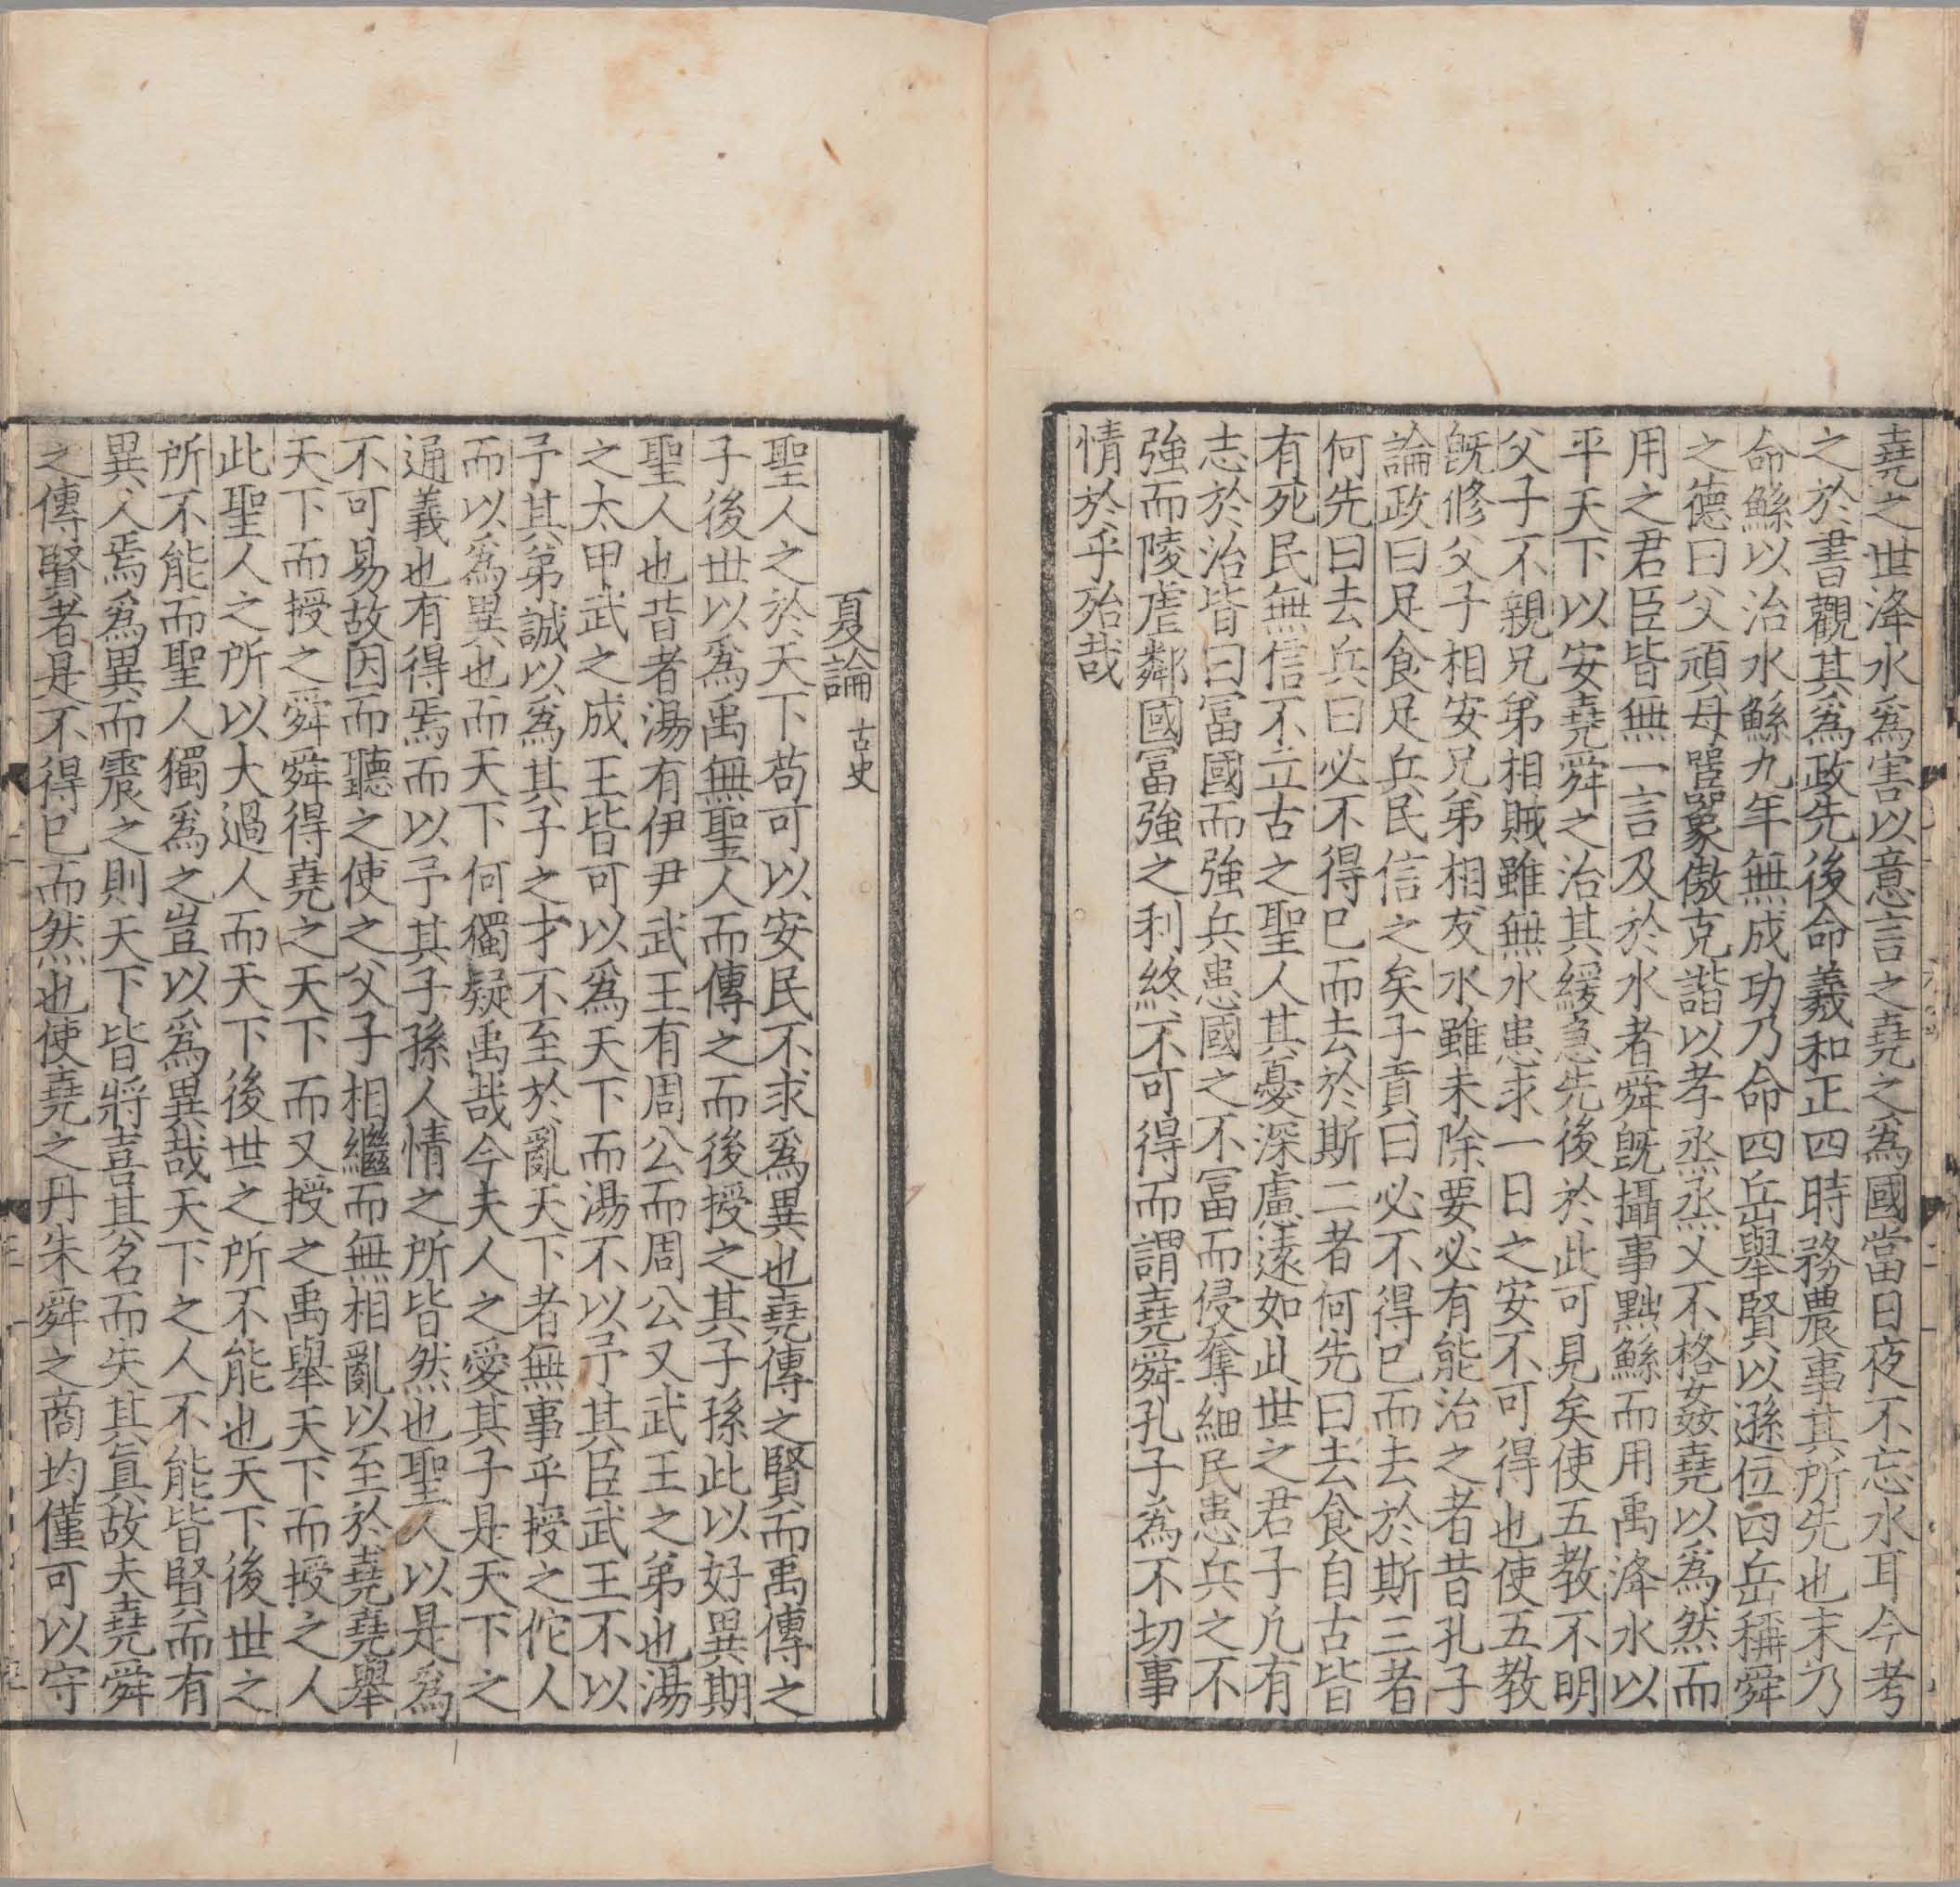 堯之世洚水爲害以意言之堯之爲國當日夜不忘水耳今考
之於書觀其爲政先後命羲和正四時務農事其所先也末乃
命鯀以治水鯀九年無成功乃命四岳舉賢以遜位四岳稱舜
之德曰父頑母嚚象傲克諧以孝烝烝乂不格姦堯以爲然而
用之君臣皆無一言及於水者舜旣攝事黜鯀而用禹洚水以
平天下以安堯舜之治其緩急先後於此可見矣使五教不明
父子不親兄弟相賊雖無水患求一日之安不可得也使五教
旣修父子相安兄弟相友水雖未除要必有能治之者昔孔子
論政曰足食足兵民信之矣子貢曰必不得已而去於斯三者
何先曰去兵曰必不得已而去於斯二者何先曰去食自古皆
有死民無信不立古之聖人其憂深慮遠如此世之君子凢有
志於治皆曰富國而強兵患國之不富而侵奪細民患兵之不
強而陵虐鄰國富強之利終不可得而謂堯舜孔子爲不切事
情於乎殆哉
夏論 古史
聖人之於天下苟可以安民不求爲異也堯傳之賢而禹傳之
子後世以爲禹無聖人而傳之而後授之其子孫此以好異期
聖人也昔者湯有伊尹武王有周公而周公又武王之弟也湯
之太甲武之成王皆可以爲天下而湯不以予其臣武王不以
予其弟誠以爲其子之才不至於亂天下者無事乎授之佗人
而以爲異也而天下何獨疑禹哉今夫人之愛其子是天下之
通義也有得焉而以予其子孫人情之所皆然也聖人以是爲
不可易故因而聽之使之父子相繼而無相亂以至於堯堯舉
天下而授之舜舜得堯之天下而又授之禹舉天下而授之人
此聖人之所以大過人而天下後世之所不能也天下後世之
所不能而聖人獨爲之豈以爲異哉天下之人不能皆賢而有
異人焉爲異而震之則天下皆將喜其名而失其眞故夫堯舜
之傳賢者是不得已而然也使堯之丹朱舜之商均僅可以守